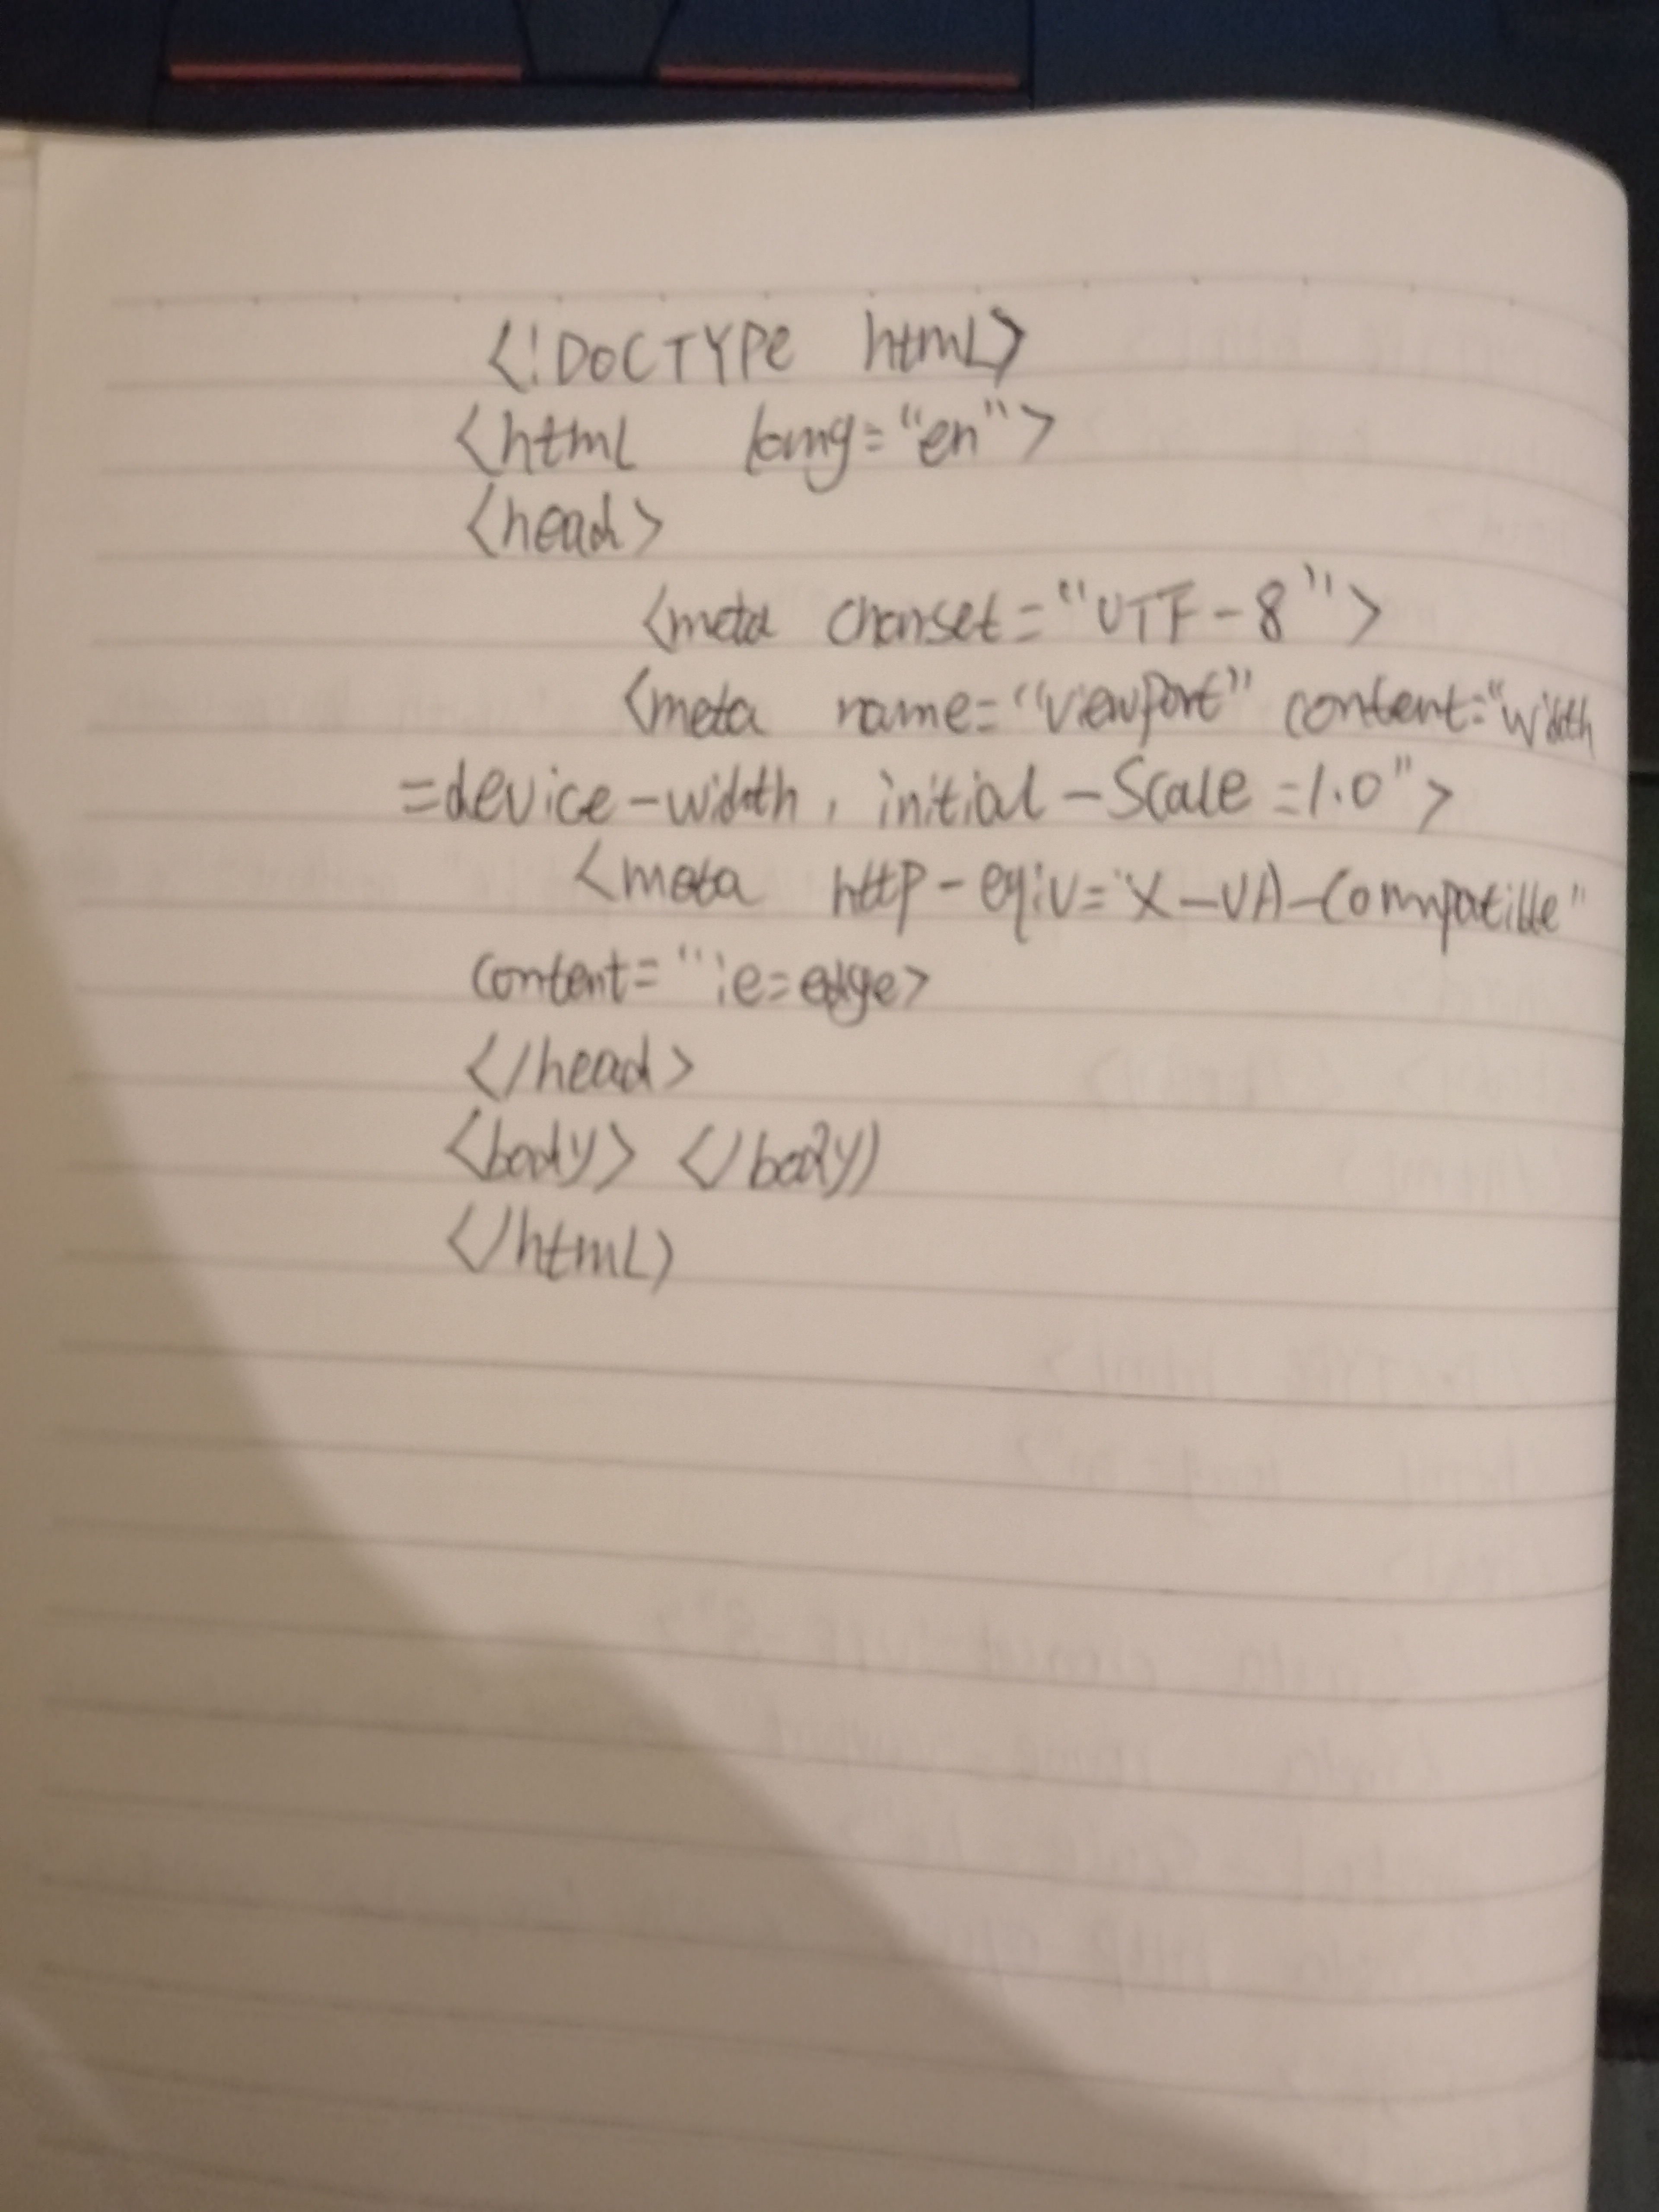 <!DOCTYPe html>
<html lang="en">
<head>
<meta charset="UTF-8">
<meta name="viewport" content="width
=device-width, initial-Scale=1.0">
<meta http-eqiv="X-UA-Compatible"
content="ie=edge>
</head>
<body> </body>
</html>